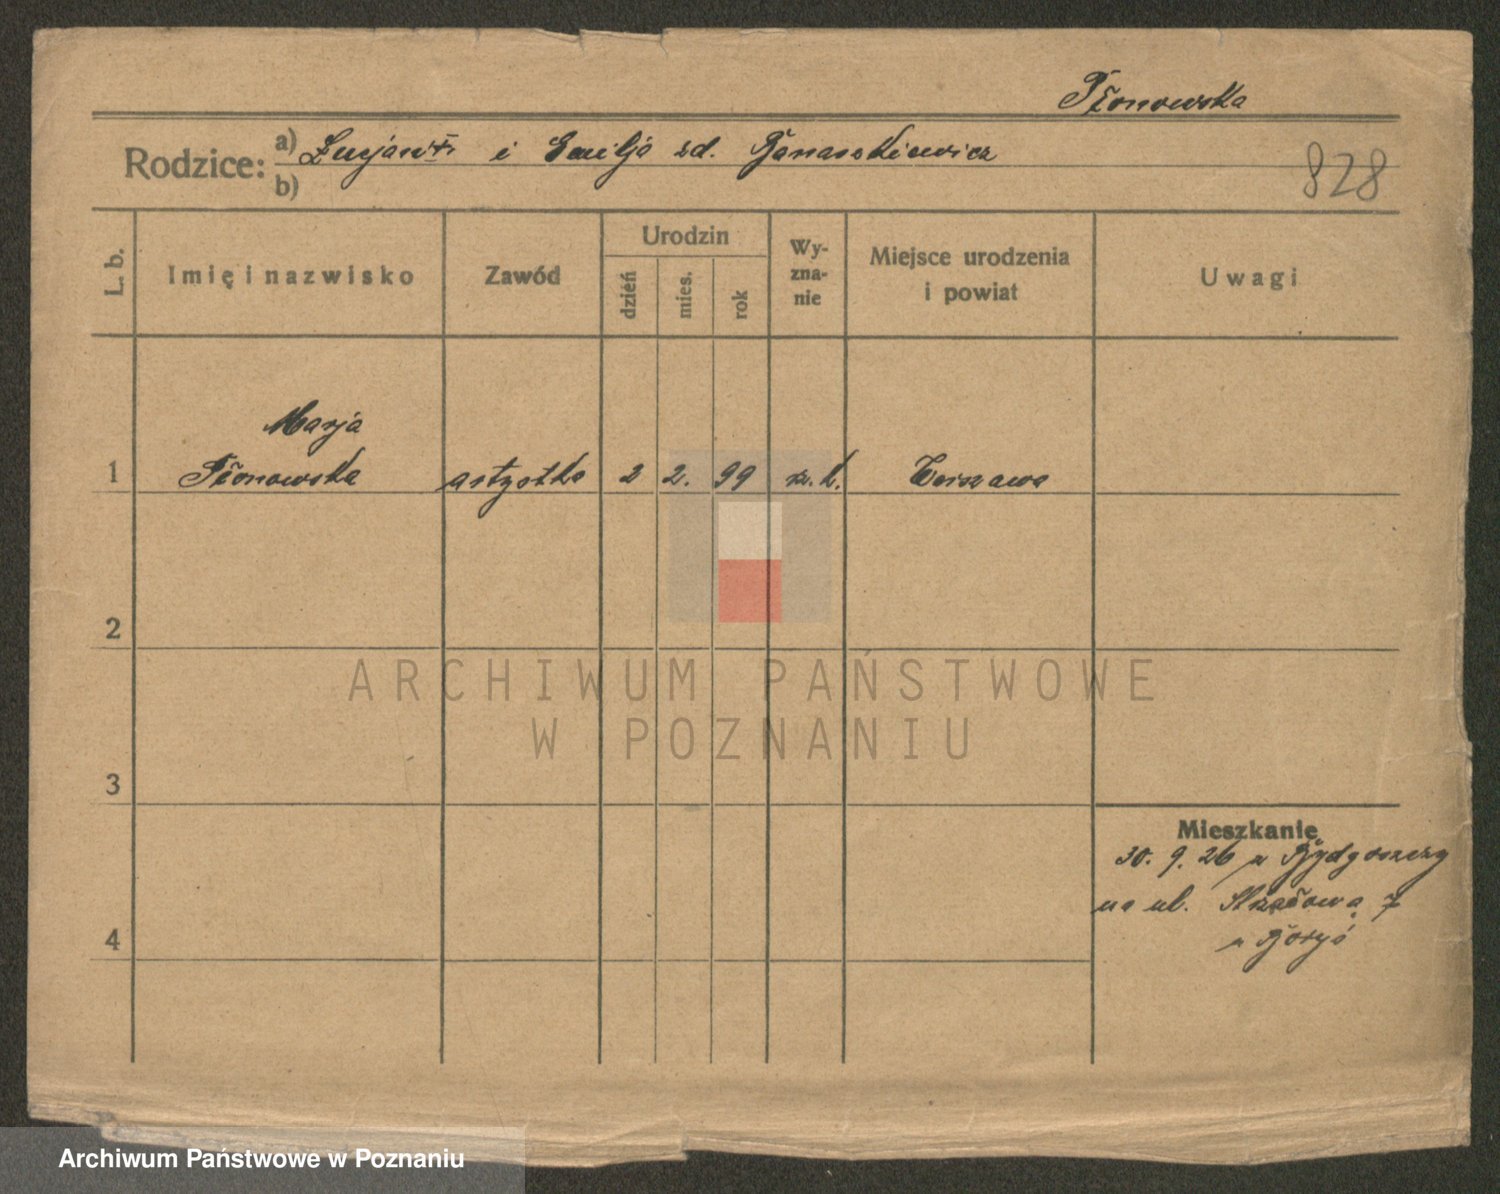 Płonowska
Rodzice: a) Lucjan i Emilja zd. Banaszkiewicz
b)
828
L. b.
Imię i nazwisko
Zawód
Urodzin
dzień
mies.
rok
Wy-
zna-
nie
Miejsce urodzenia
i powiat
Uwagi
Marja
1 Płonowska artystka 2 2. 99 rz. k. Warszawa
2
3
4
Mieszkanie
30. 9. 26 z Bydgoszczy
na ul. 7
u
ARCHIWUM PAŃSTWOWE
W POZNANIU
Archiwum Państwowe w Poznaniu